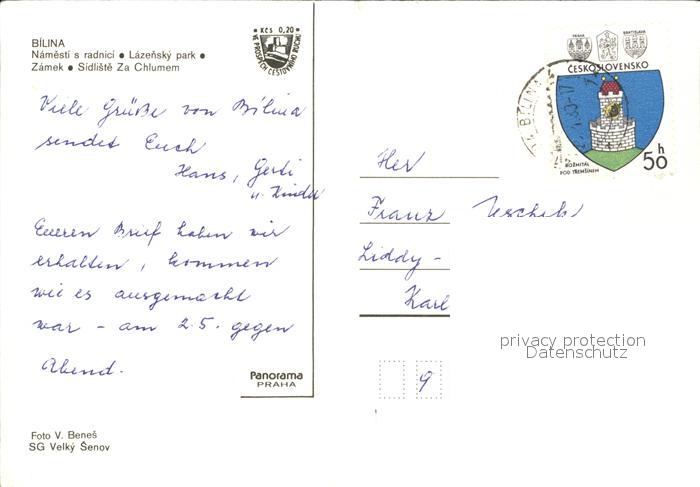 BÍLINA
Náměstí s radnicí ● Lázeňský park ●
Zámek ● Sídliště Za Chlumem
Kčs 0,20
VE PROSPĚCH CESTOVNÍHO RUCHU
Viele Grüße von Bílina
sendet Euch
Hans, Gerti
u. Kinder
Eueren Brief haben wir
erhalten, kommen
wie es ausgemacht
war - am 2.5. gegen
Abend.
Panorama
PRAHA
Foto V. Beneš
SG Velký Šenov
PRAHA
BRATISLAVA
ČESKOSLOVENSKO
BÍLINA
ROŽMITÁL
POD TŘEMŠÍNEM
50 h
Her
Franz
Liddy-
Karl
9
privacy protection
Datenschutz